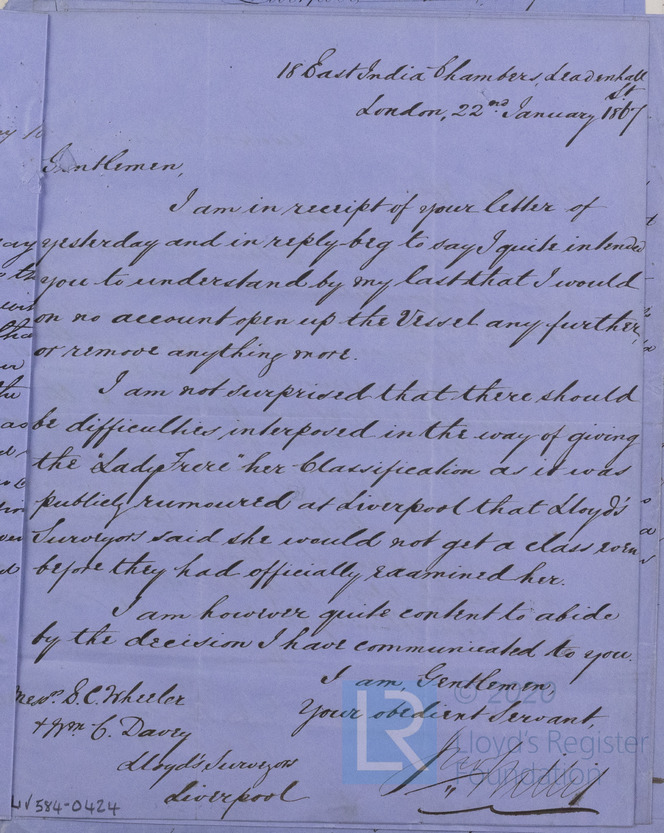 18 East India Chambers, Leadenhall
St
London, 22nd January 1867
Gentlemen,
I am in receipt of your letter of
yesterday and in reply beg to say I quite intended
you to understand by my last that I would
on no account open up the Vessel any further,
or remove anything more.
I am not surprised that there should
be difficulties interposed in the way of giving
the "Lady Frere" her Classification as it was
publicly rumoured at Liverpool that Lloyd's
Surveyors said she would not get a class even
before they had officially examined her.
I am however quite content to abide
by the decision I have communicated to you.
I am, Gentlemen,
Your obedient Servant,
Messrs. S. C. Wheeler
+ Wm C. Davey
Lloyd's Surveyors
Liverpool
584-0424
© 2020
LR
Lloyd's Register
Foundation